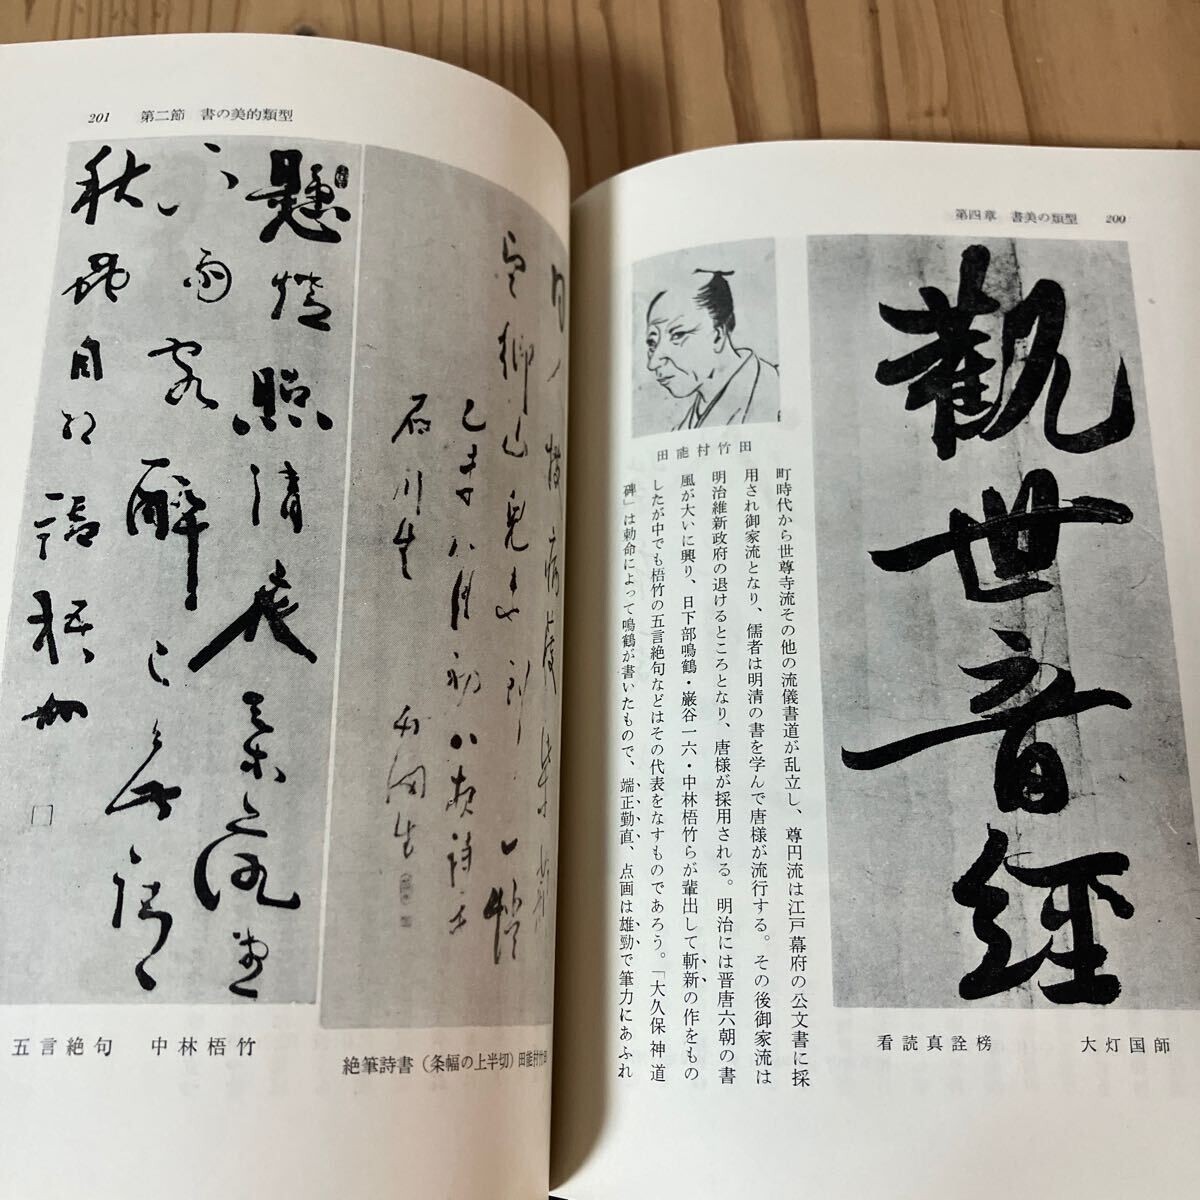 第四章　書美の類型　200
觀世音經
看読真詮榜　大灯国師
田能村竹田
町時代から世尊寺流その他の流儀書道が乱立し、尊円流は江戸幕府の公文書に採
用され御家流となり、儒者は明清の書を学んで唐様が流行する。その後御家流は
明治維新政府の退けるところとなり、唐様が採用される。明治には晋唐六朝の書
風が大いに興り、日下部鳴鶴・巌谷一六・中林梧竹らが輩出して斬新の作をもの
したが中でも梧竹の五言絶句などはその代表をなすものであろう。「大久保神道
碑」は勅命によって鳴鶴が書いたもので、端正勤直、点画は雄勁で筆力にあふれ
201　第二節　書の美的類型
乙未八月初八夜
石川生
絶筆詩書（条幅の上半切）田能村竹田
懸燈照清夜
秋蟲
五言絶句　中林梧竹